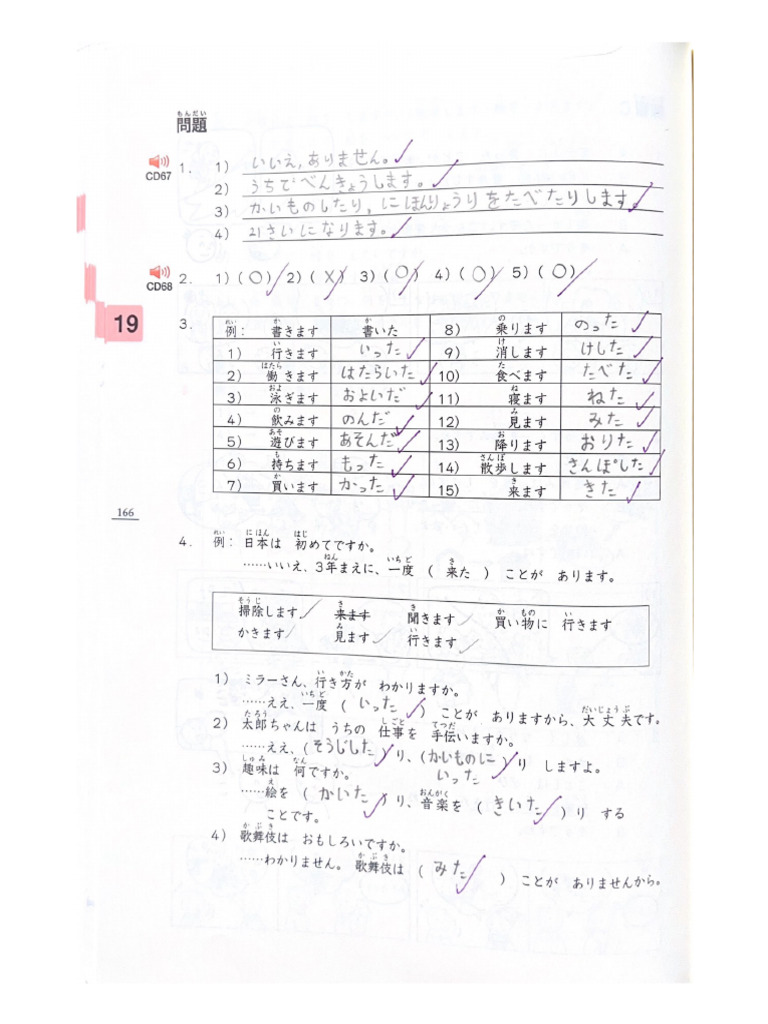 もんだい
問題
CD67 1. 1) いいえ,ありません。
2) うちでべんきょうします。
3) かいものしたり,にほんりょうりをたべたりします
4) 21さいになります。
CD68 2. 1)(○) 2)(X) 3)(○) 4)(○) 5)(○)
19
3.
れい か か の
例: 書きます 書いた 8) 乗ります のった
い け
1) 行きます いった 9) 消します けした
はたら た
2) 働きます はたらいた 10) 食べます たべた
およ ね
3) 泳ぎます およいだ 11) 寝ます ねた
の み
4) 飲みます のんだ 12) 見ます みた
あそ お
5) 遊びます あそんだ 13) 降ります おりた
も さんぽ
6) 持ちます もった 14) 散歩します さんぽした
か き
7) 買います かった 15) 来ます きた
166
れい にほん はじ
4. 例: 日本は 初めてですか。
ねん いちど き
……いいえ、3年まえに、一度 ( 来た ) ことが あります。
そうじ き き か もの い
掃除します 来ます 聞きます 買い物に 行きます
み い
かきます 見ます 行きます
い かた
1) ミラーさん、行き方が わかりますか。
いちど だいじょうぶ
……ええ、一度 ( いった ) ことが ありますから、大丈夫です。
たろう しごと てつだ
2) 太郎ちゃんは うちの 仕事を 手伝いますか。
……ええ、(そうじした)り、(かいものに いった)り しますよ。
しゅみ なん
3) 趣味は 何ですか。
え おんがく
……絵を ( かいた )り、音楽を ( きいた )り する
ことです。
かぶき
4) 歌舞伎は おもしろいですか。
かぶき
……わかりません。歌舞伎は ( みた ) ことが ありませんから。